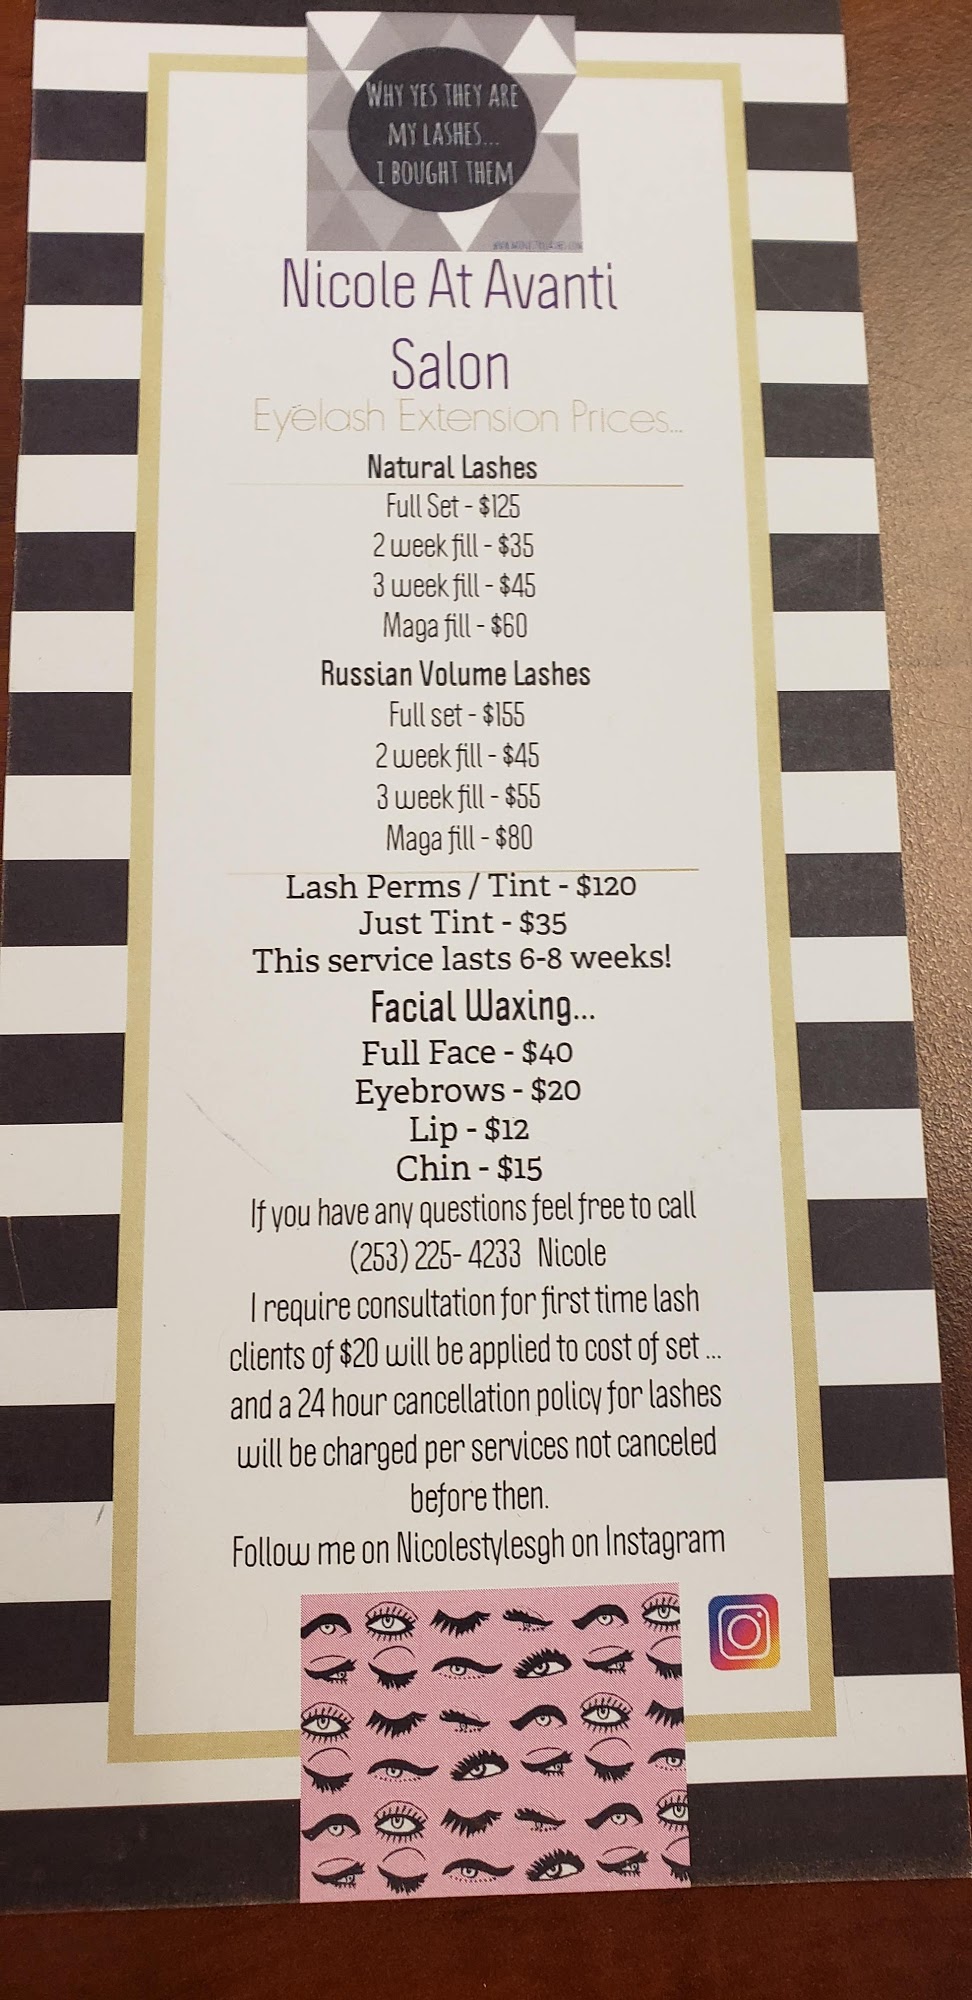 WHY YES THEY ARE
MY LASHES...
I BOUGHT THEM
Nicole At Avanti
Salon
Eyelash Extension Prices...
Natural Lashes
Full Set - $125
2 week fill - $35
3 week fill - $45
Maga fill - $60
Russian Volume Lashes
Full set - $155
2 week fill - $45
3 week fill - $55
Maga fill - $80
Lash Perms / Tint - $120
Just Tint - $35
This service lasts 6-8 weeks!
Facial Waxing...
Full Face - $40
Eyebrows - $20
Lip - $12
Chin - $15
If you have any questions feel free to call
(253) 225- 4233 Nicole
I require consultation for first time lash
clients of $20 will be applied to cost of set ...
and a 24 hour cancellation policy for lashes
will be charged per services not canceled
before then.
Follow me on Nicolestylesgh on Instagram